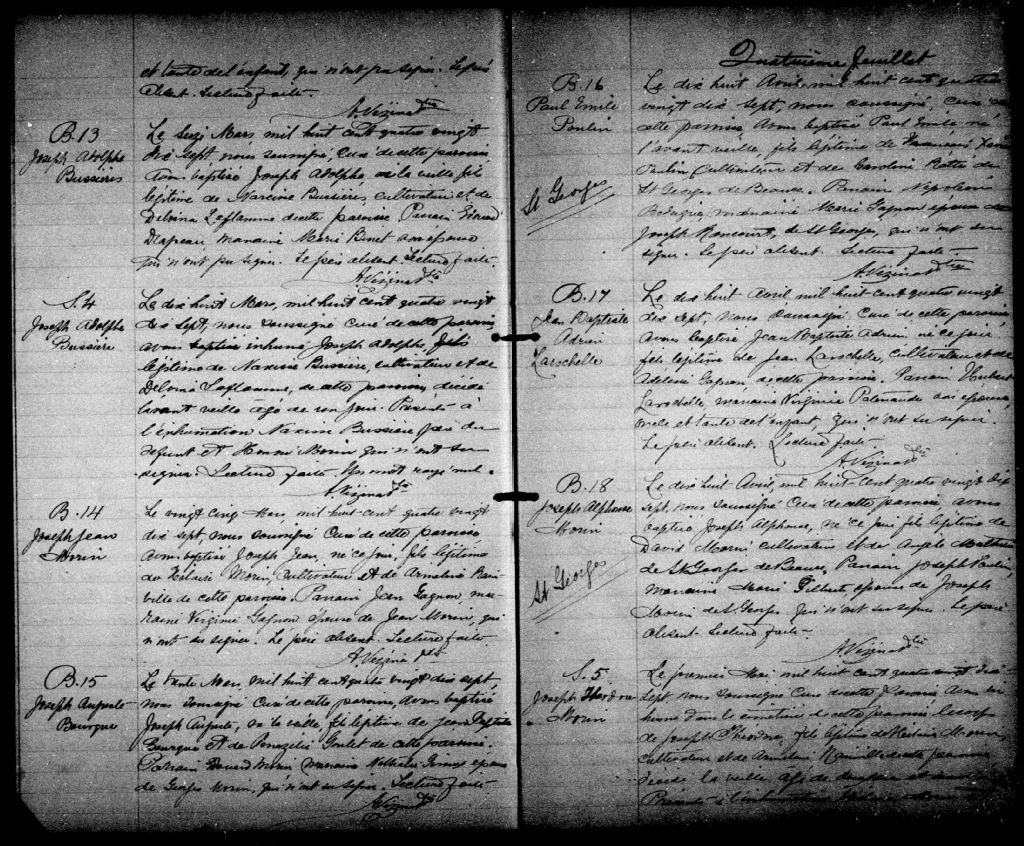 et tante de l'enfant, qui n'ont pu signer. Le père
absent. Lecture faite.
A. Vézina Ptre
B. 13
Joseph Adolphe
Bussières
Le seize Mars, mil huit cent quatre vingt
dix sept, nous soussigné, Curé de cette paroisse
avons baptisé Joseph Adolphe né la veille fils
légitime de Narcisse Bussières, cultivateur et de
Delvina Laflamme de cette paroisse. Parrain
Drapeau, marraine Marie Binet son épouse
qui n'ont pu signer. Le père absent. Lecture faite.
A. Vézina Ptre
S. 4
Joseph Adolphe
Bussière
Le dix huit Mars, mil huit cent quatre vingt
dix sept, nous soussigné Curé de cette paroisse
avons baptisé inhumé Joseph Adolphe, fils
légitime de Narcisse Bussière, cultivateur et de
Delvina Laflamme, de cette paroisse, décédé
l'avant veille âgé de un jour. Présents à
l'inhumation Narcisse Bussière père du
défunt et Morin qui n'ont su
signer. Lecture faite. Un mot rayé nul.
A. Vézina Ptre
B. 14
Joseph Jean
Morin
Le vingt cinq Mars, mil huit cent quatre vingt
dix sept, nous soussigné Curé de cette paroisse
avons baptisé Joseph Jean, né ce jour, fils légitime
de Morin, Cultivateur et de
de cette paroisse. Parrain Jean Gagnon, mar-
raine Virginie Gagnon épouse de Jean Morin, qui
n'ont su signer. Le père absent. Lecture faite
A. Vézina Ptre
B. 15
Joseph Auguste
Bourque
Le trente Mars, mil huit cent quatre vingt dix sept,
nous soussigné Curé de cette paroisse, avons baptisé
Joseph Auguste, né la veille, fils légitime de Jean Baptiste
Bourque et de Goulet de cette paroisse.
Parrain Morin, marraine épouse
de Georges Morin, qui n'ont su signer. Lecture faite
A. Vézina Ptre
Quatrième feuillet
B. 16
Paul Emile
Poulin
St Georges
Le dix huit Avril, mil huit cent quatre
vingt dix sept, nous soussigné, Curé de
cette paroisse avons baptisé Paul Emile né
l'avant veille, fils légitime de
Poulin Cultivateur et de Caroline de
St Georges de Beauce. Parrain Napoléon
marraine Marie Gagnon épouse de
Joseph de St Georges, qui n'ont su
signer. Le père absent. Lecture faite.
A. Vézina Ptre
B. 17
Jean Baptiste
Adrien
Larochelle
Le dix huit Avril mil huit cent quatre vingt
dix sept, Nous soussigné Curé de cette paroisse
avons baptisé Jean Baptiste Adrien né ce jour
fils légitime de Jean Larochelle, cultivateur et de
Gagnon de cette paroisse. Parrain Hubert
Larochelle, marraine Virginie son épouse,
oncle et tante de l'enfant, qui n'ont su signer.
Le père absent. Lecture faite
A. Vézina Ptre
B. 18
Joseph Alphonse
Morin
St Georges
Le dix huit Avril, mil huit cent quatre vingt dix
sept, nous soussigné Curé de cette paroisse avons
baptisé Joseph Alphonse, né ce jour fils légitime de
David Morin cultivateur et de
de St Georges de Beauce. Parrain Joseph Poulin,
marraine Marie Gilbert épouse de Joseph
Morin de St Georges qui n'ont su signer. Le père
absent. Lecture faite
A. Vézina Ptre
S. 5
Joseph
Morin
Le premier Mai mil huit cent quatre vingt dix
sept nous soussigné Curé de cette Paroisse avons in-
humé dans le cimetière de cette paroisse le corps
de Joseph fils légitime de Morin
cultivateur et de de cette paroisse
décédé la veille âgé de
Présents à l'inhumation